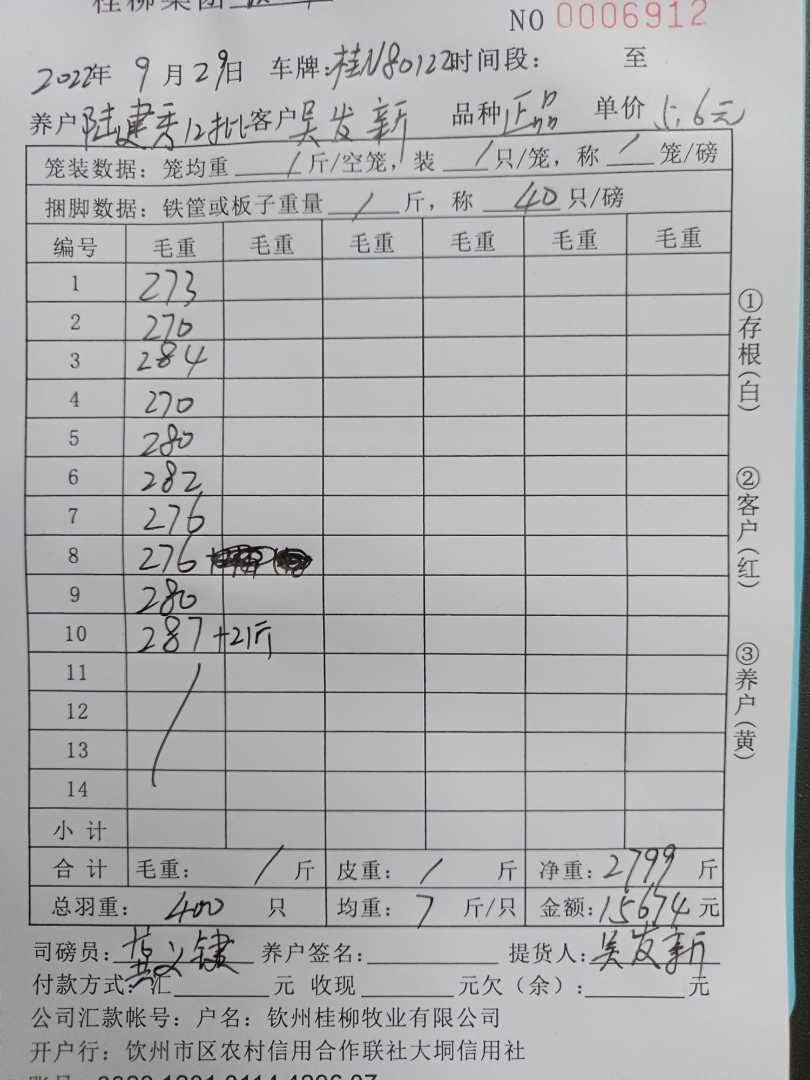 桂柳集团
NO 0006912
2022年 9月29日 车牌:桂N80122时间段: 至
养户陆建秀12批客户吴发新 品种正品 单价 5.6元
笼装数据: 笼均重 / 斤/空笼, 装 / 只/笼, 称 / 笼/磅
捆脚数据: 铁筐或板子重量 / 斤, 称 40 只/磅
编号 毛重 毛重 毛重 毛重 毛重 毛重
1 273
2 270
3 284
4 270
5 280
6 282
7 276
8 276
9 280
10 287+21斤
11
12
13
14
小 计
合 计 毛重: / 斤 皮重: / 斤 净重: 2799 斤
总羽重: 400 只 均重: 7 斤/只 金额: 15674 元
司磅员: 养户签名: 提货人: 吴发新
付款方式: 汇 元 收现 元欠(余): 元
公司汇款帐号: 户名: 钦州桂柳牧业有限公司
开户行: 钦州市区农村信用合作联社大垌信用社
①存根(白)
②客户(红)
③养户(黄)